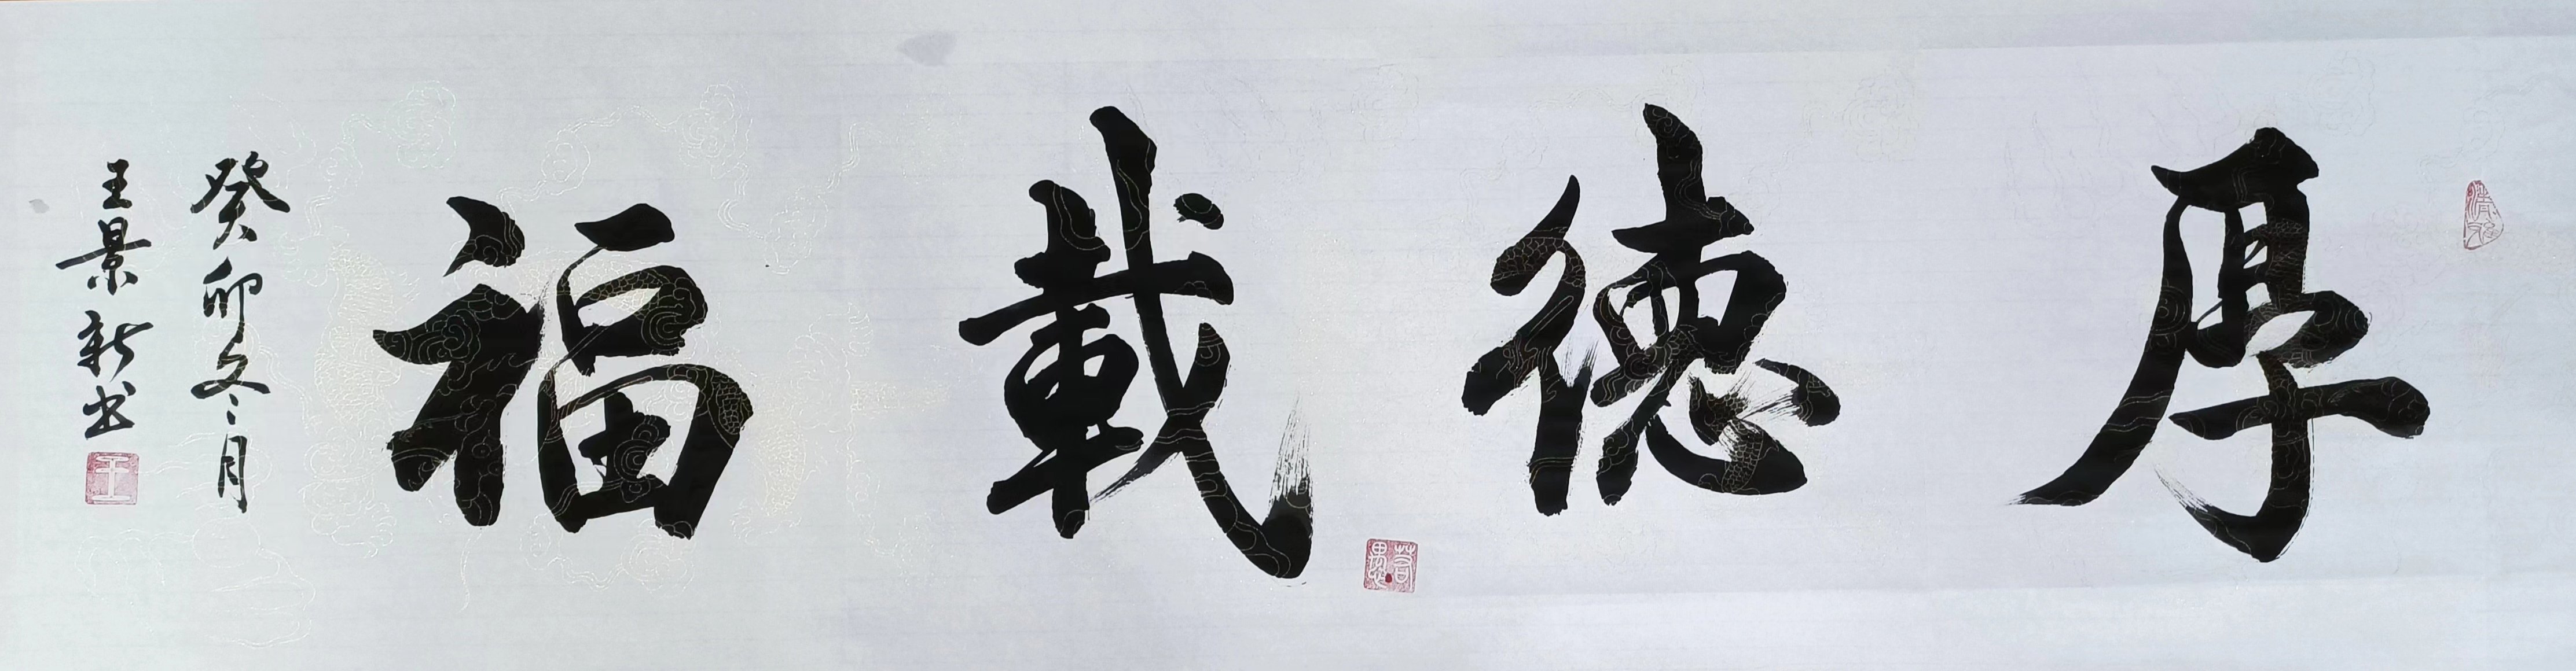 厚德載福
癸卯冬月
王景新书
王
若愚